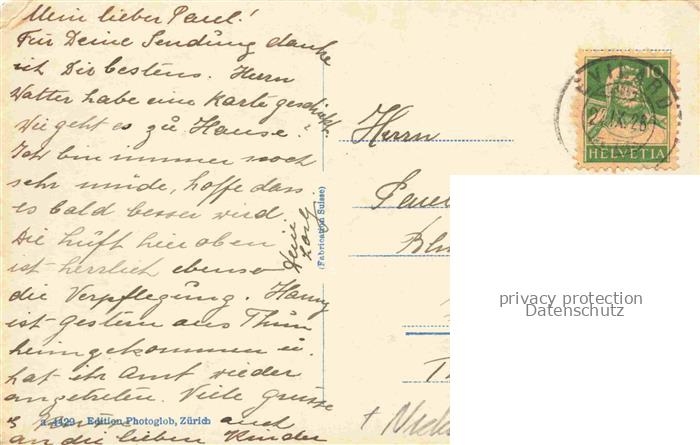 Mein lieber Paul!
Für Deine Sendung danke
ich Dir bestens. Herrn
Walter habe eine Karte geschickt.
Wie geht es zu Hause?
Ich bin immer noch
sehr müde, hoffe dass
es bald besser wird.
Die Luft hier oben
ist herrlich ebenso
die Verpflegung. Hanny
ist gestern aus Thun
heimgekommen u.
hat ihr Amt wieder
angetreten. Viele Grüsse
auch
an die lieben Kinder
Dein
(Fabrication Suisse)
a 4429 Edition Photoglob, Zürich
Herrn
Paul
10
HELVETIA
EVILARD
IX.26
privacy protection
Datenschutz